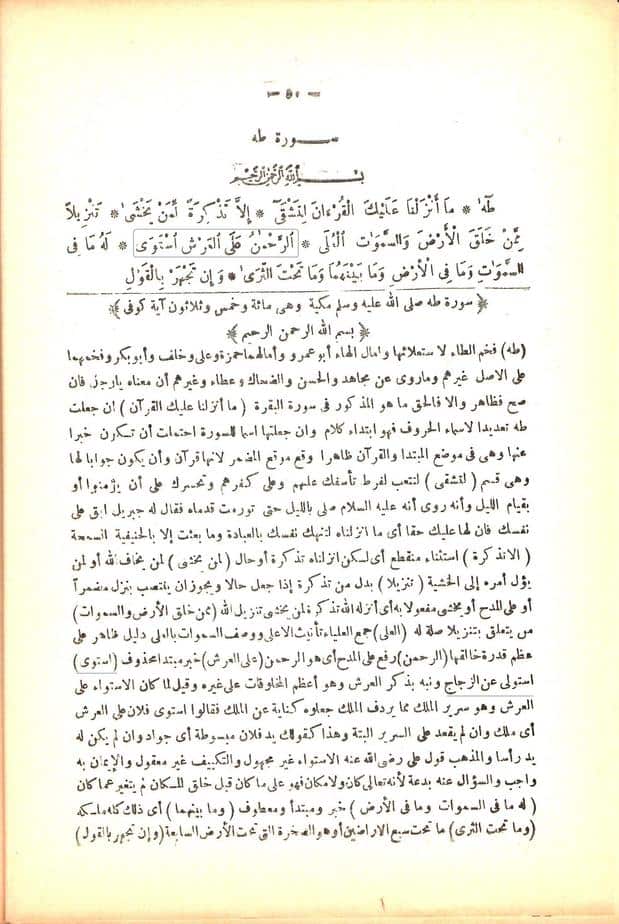 — ٥٠ —
سورة طه
بسم الله الرحمن الرحيم
طه * ما أنزلنا عليك القرءان لتشقى * إلا تذكرة لمن يخشى * تنزيلا
ممن خلق الأرض والسموات العلى * الرحمن على العرش استوى * له ما في
السموات وما في الأرض وما بينهما وما تحت الثرى * وإن تجهر بالقول
﴿سورة طه صلى الله عليه وسلم مكية وهى مائة وخمس وثلاثون آية كوفى﴾
﴿بسم الله الرحمن الرحيم﴾
(طه) فخم الطاء لاستعلائها وامال الهاء أبو عمرو وأمالهما حمزة وعلى وخلف وأبو بكر وفخمهما
على الاصل غيرهم وماروى عن مجاهد والحسن والضحاك وعطاء وغيرهم أن معناه يارجل فان
صح فظاهر والا فالحق ما هو المذكور فى سورة البقرة (ما أنزلنا عليك القرآن) ان جعلت
طه تعديدا لاسماء الحروف فهو ابتداء كلام وان جعلتها اسما للسورة احتملت أن تكون خبرا
عنها وهى فى موضع المبتدا والقرآن ظاهرا وقع موقع المضمر لانها قرآن وأن يكون جوابا لها
وهى قسم (لتشقى) لتتعب لفرط تأسفك عليهم وعلى كفرهم وتحسرك على أن يؤمنوا أو
بقيام الليل وأنه روى أنه عليه السلام صلى بالليل حتى تورمت قدماه فقال له جبريل ابق على
نفسك فان لها عليك حقا أى ما انزلناه لتنهك نفسك بالعبادة وما بعثت إلا بالحنيفية السمحة
(الا تذكرة) استثناء منقطع أى لكن انزلناه تذكرة أو حال (لمن يخشى) لمن يخاف الله أو لمن
يؤل أمره إلى الخشية (تنزيلا) بدل من تذكرة إذا جعل حالا ويجوز ان ينتصب بنزل مضمرا
أو على المدح أو بخشى مفعولا به أى أنزله الله تذكرة لمن يخشى تنزيل الله (ممن خلق الأرض والسموات)
من يتعلق بتنزيلا صلة له (العلى) جمع العلياء تأنيث الاعلى ووصف السموات بالعلى دليل ظاهر على
عظم قدرة خالقها (الرحمن) رفع على المدح أى هو الرحمن (على العرش) خبر مبتدا محذوف (استوى)
استولى عن الزجاج ونبه بذكر العرش وهو أعظم المخلوقات على غيره وقيل لما كان الاستواء على
العرش وهو سرير الملك مما يردف الملك جعلوه كناية عن الملك فقالوا استوى فلان على العرش
أى ملك وان لم يقعد على السرير البتة وهذا كقولك يد فلان مبسوطة أى جواد وان لم يكن له
يد رأسا والمذهب قول على رضى الله عنه الاستواء غير مجهول والتكييف غير معقول والإيمان به
واجب والسؤال عنه بدعة لأنه تعالى كان ولا مكان فهو على ما كان قبل خلق المكان لم يتغير عما كان
(له ما فى السموات وما فى الأرض) خبر ومبتدأ ومعطوف (وما بينهما) أى ذلك كله ملكه
(وما تحت الثرى) ما تحت سبع الاراضين أو هو الصخرة التى تحت الأرض السابعة (وإن تجهر بالقول)